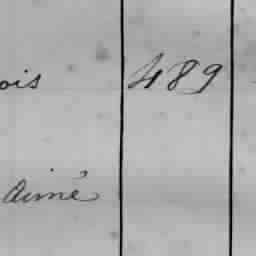 ois 489
Aimé